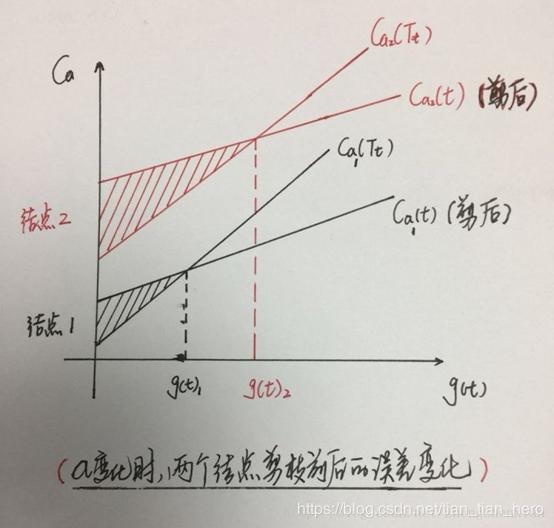 Ca
Ca₂(Tt)
Ca₂(t) (剪后)
Ca₁(Tt)
Ca₁(t) (剪后)
结点2
结点1
g(t)₁
g(t)₂
g(t)
(a变化时,两个结点剪枝前后的误差变化)
https://blog.csdn.net/tian_tian_hero